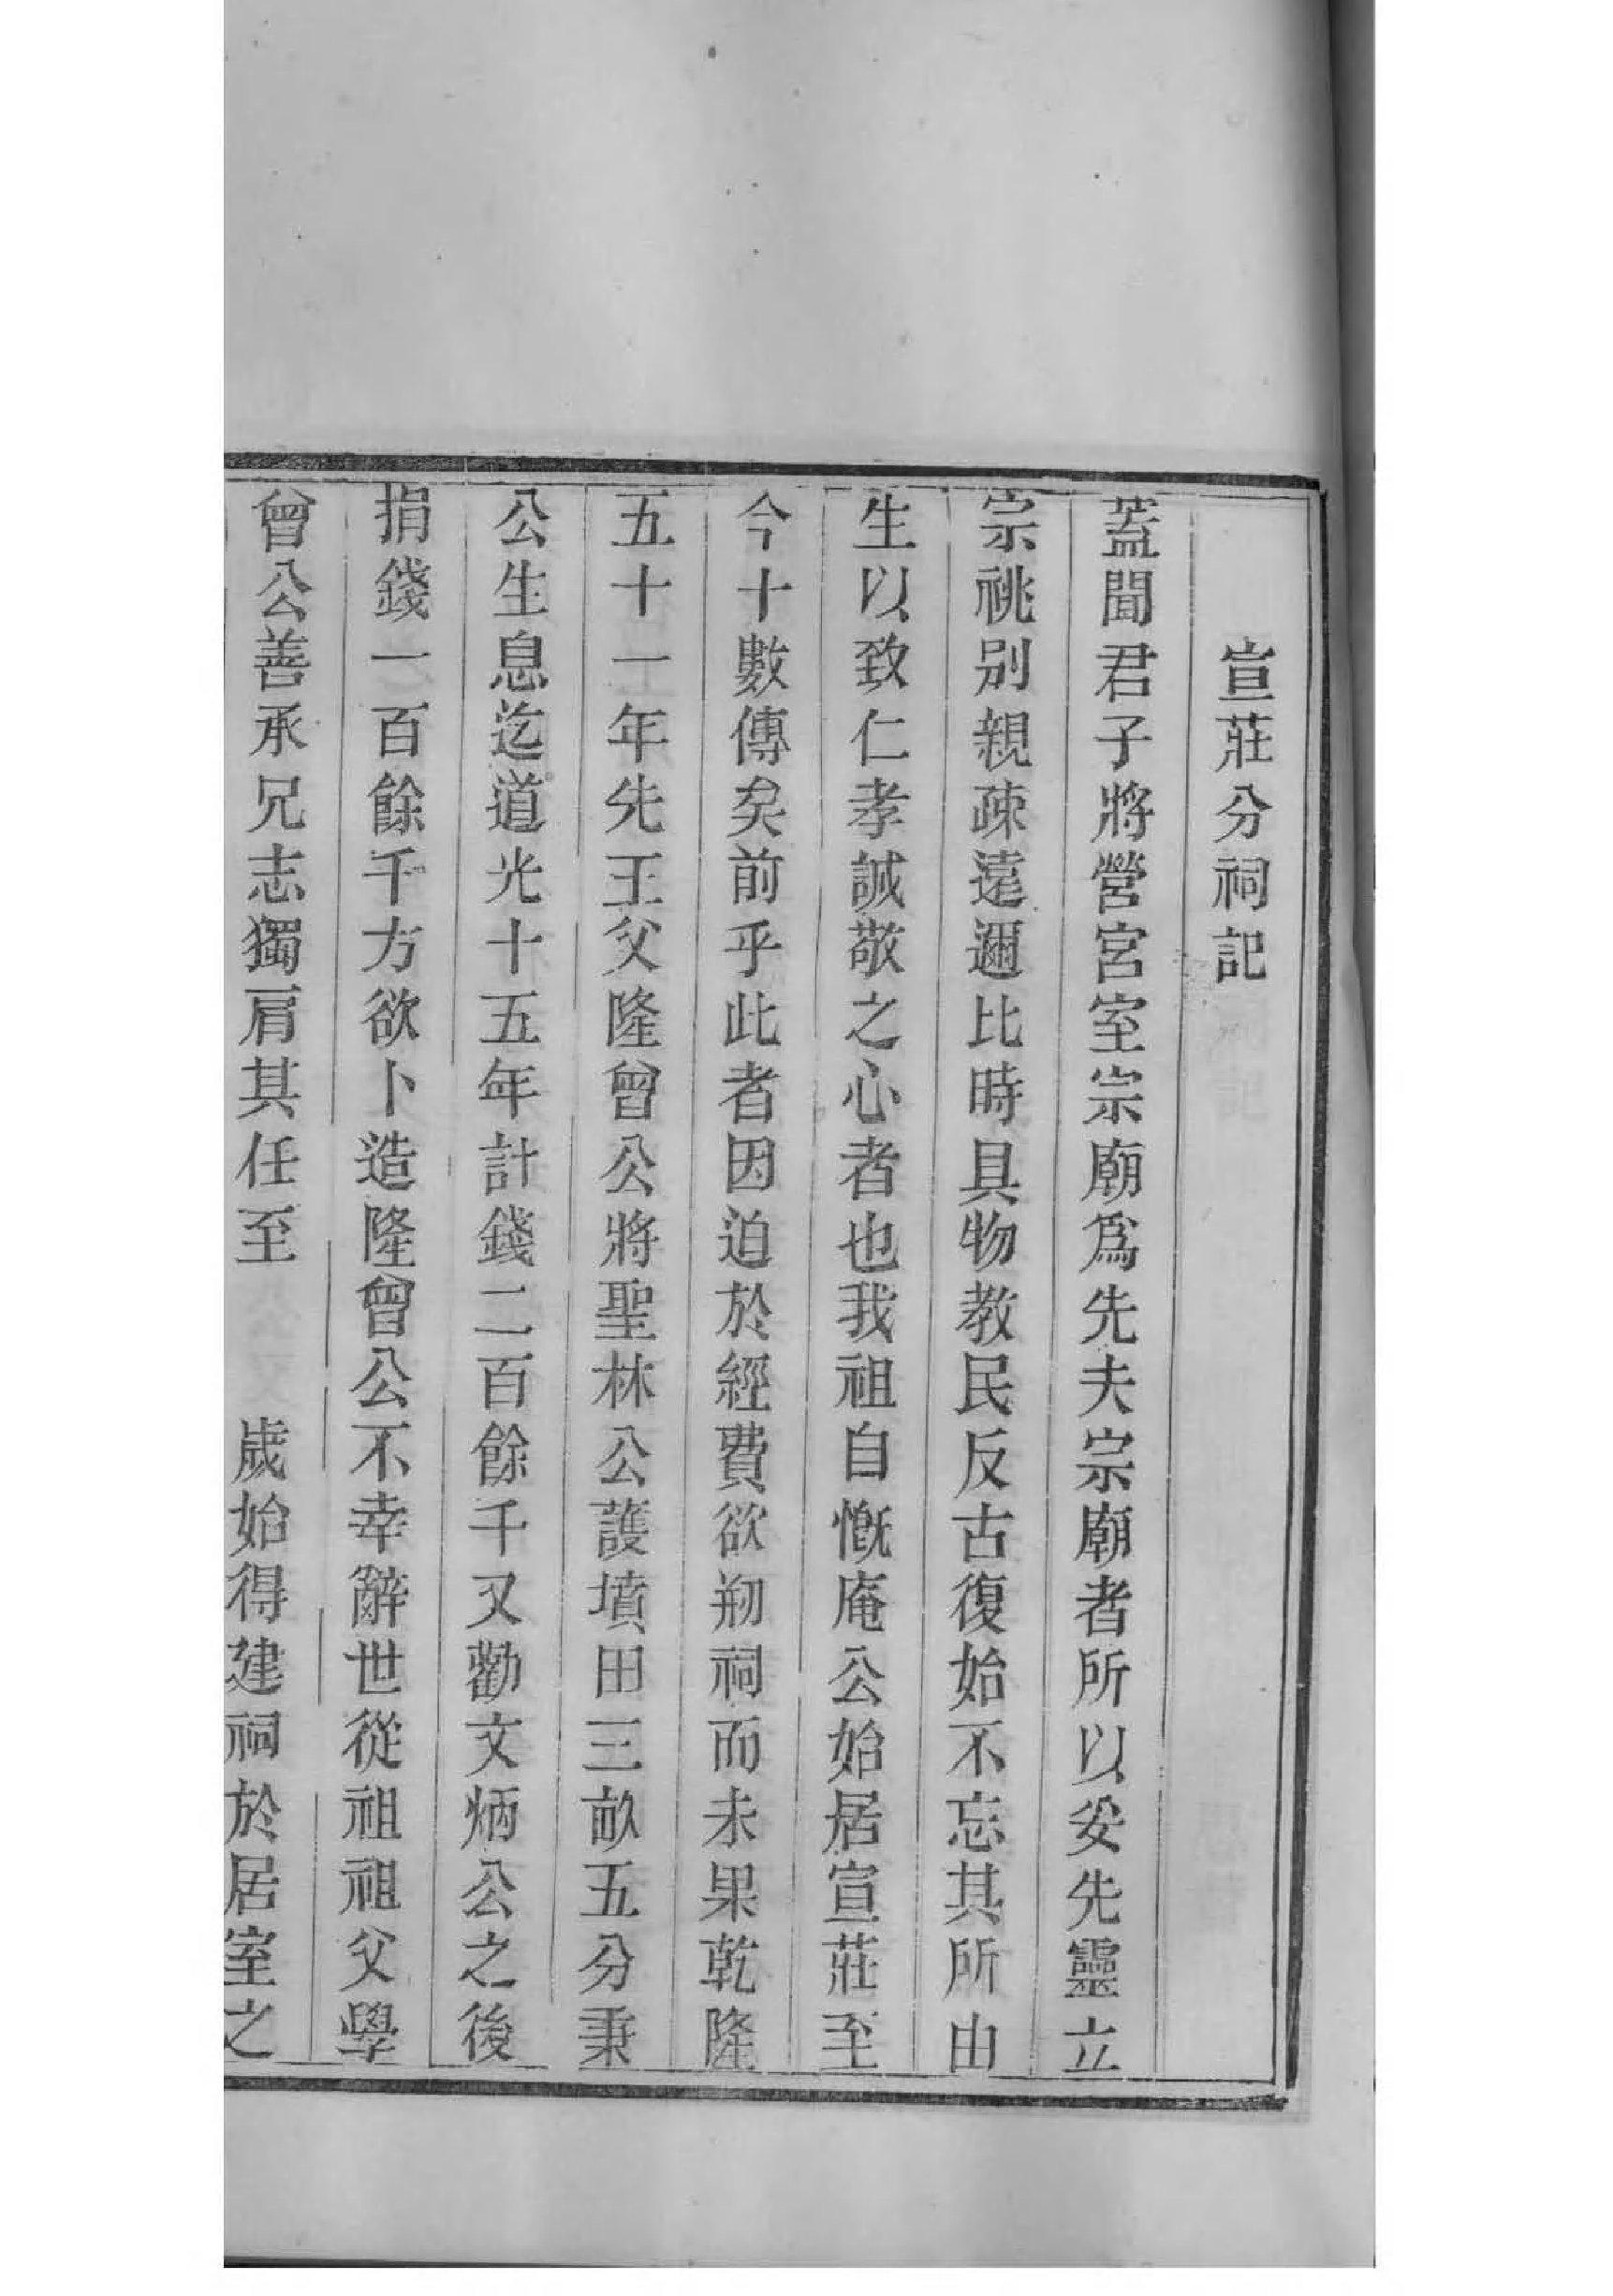 宣莊分祠記
蓋聞君子將營宮室宗廟爲先夫宗廟者所以妥先靈立
宗祧别親疎遠邇比時具物教民反古復始不忘其所由
生以致仁孝誠敬之心者也我祖自慨庵公始居宣莊至
今十數傳矣前乎此者因迫於經費欲刱祠而未果乾隆
五十一年先王父隆曾公將聖林公護墳田三畝五分秉
公生息迄道光十五年計錢二百餘千又勸文炳公之後
捐錢一百餘千方欲卜造隆曾公不幸辭世從祖祖父學
曾公善承兄志獨肩其任至　歲始得建祠於居室之